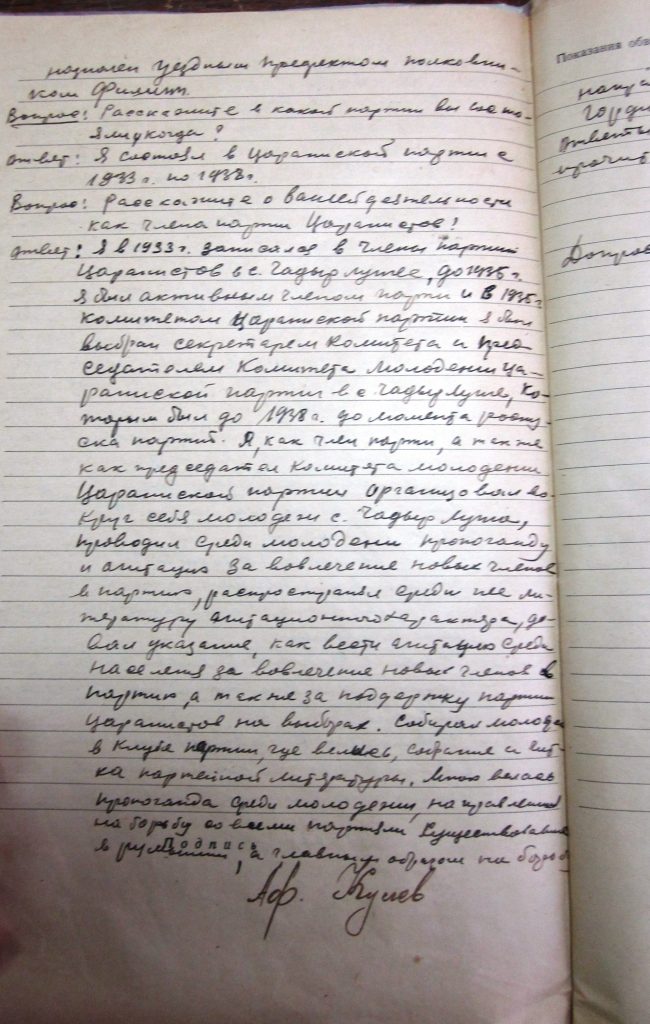 назначен уездным префектом полковни-
ком Филипп.
Вопрос: Расскажите в какой партии вы состо-
яли и когда?
Ответ: Я состоял в Царанисской партии с
1933 г. по 1938 г.
Вопрос: Расскажите о вашей деятельности
как члена партии Царанистов?
Ответ: Я в 1933 г. записался в члены партии
Царанистов в с. Чадыр Лунге, до 1935 г.
я был активным членом партии и в 1935 г.
комитетом Царанисской партии я был
выбран секретарем комитета и пред-
седателем Комитета молодежи ца-
ранисской партии в с. Чадыр Лунге, ко-
торым был до 1938 г. до момента роспу-
ска партий. Я, как член партии, а так же
как председател Комитета молодежи
Царанисской партии организовал во-
круг себя молодежи с. Чадыр Лунга,
проводил среди молодежи пропоганду
и агитацию за вовлечение новых членов
в партию, распространял среди нее ли-
тературу агитационного характера, да-
вал указание, как вести агитацию среди
населения за вовлечение новых членов в
партию, а так же за поддержку партии
Царанистов на выборах. Собирал молодеж
в клубе партии, где велись, собрание и чит-
ка партейной литературы. Мною велась
пропоганда среди молодежи, направленная
на борьбу со всеми партиями существовавш
в румынии, а главным образом на борьб
Подпись
Аф. Кулев
Показания обв
Допрос